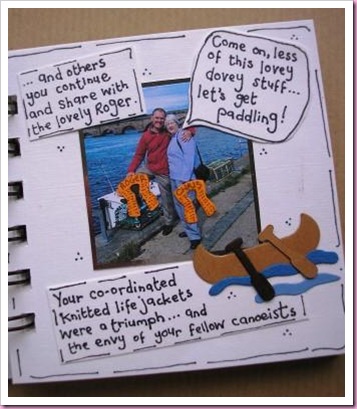 ... and others
you continue
land share with
the lovely Roger.
Come on, less
of this lovey
dovey stuff...
let's get
paddling!
Your co-ordinated
Knitted life jackets
were a triumph... and
the envy of your fellow canoeists